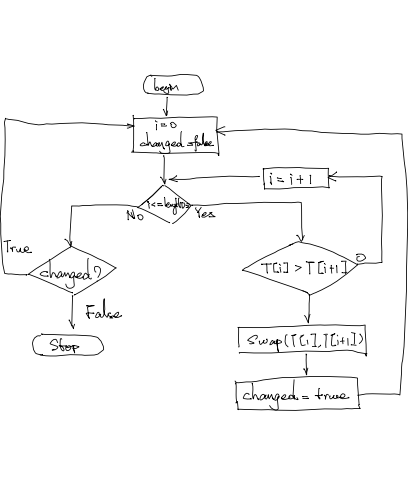 begin
i=0
changed=false
i=i+1
No
Yes
True
changed?
T[i] > T[i+1]
0
False
Stop
Swap(T[i],T[i+1])
changed = true